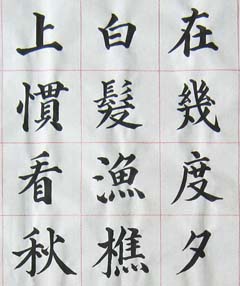 在幾度夕
白髮漁樵
上慣看秋